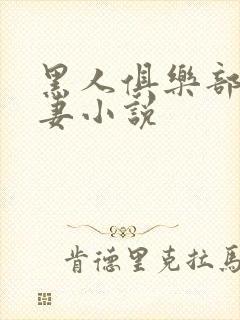 黑人俱樂部
妻小說
肯德里克拉馬